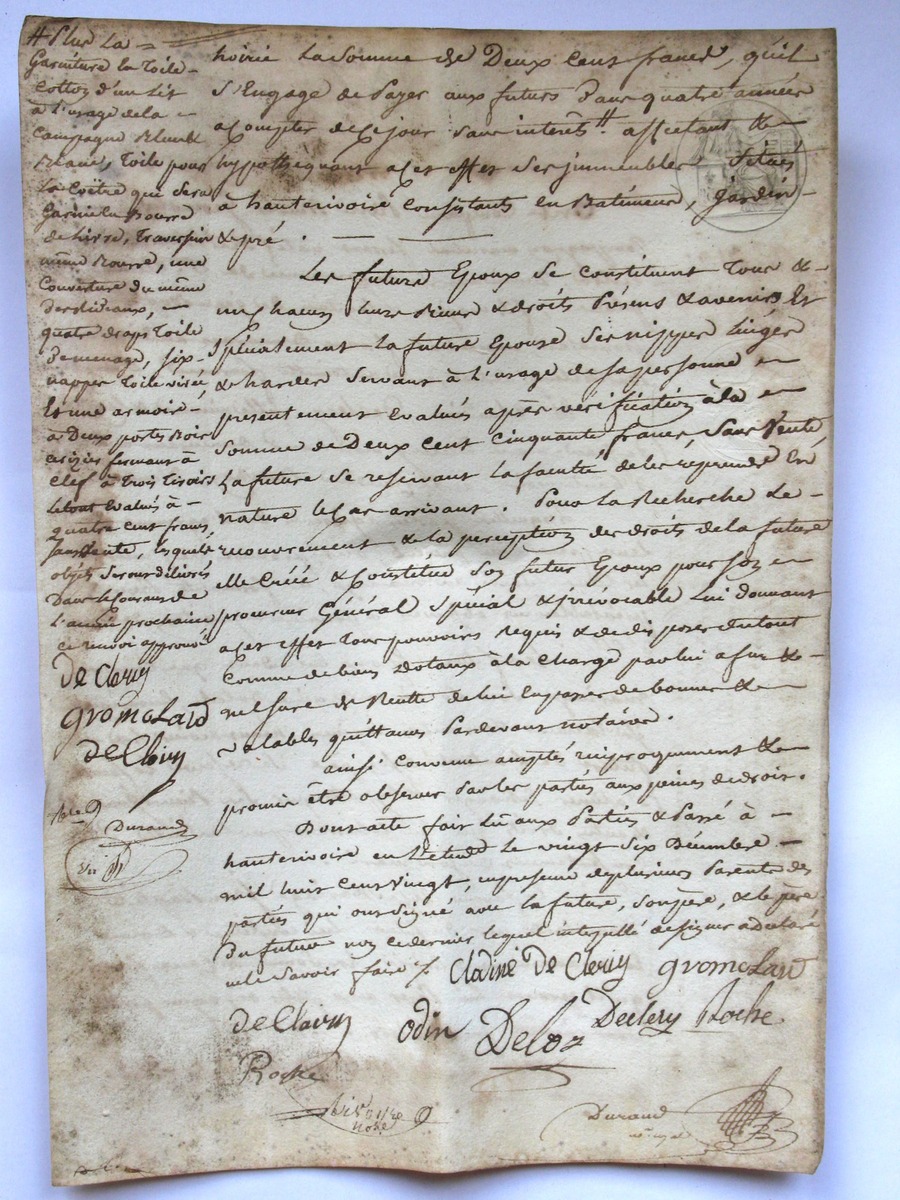 # Plus la
Garniture la Toile
Cotton d'un Lit
à l'usage de la
campagne
blanc, Toile pour
la Coëtre qui sera
Garnie en Bourre
de lievre, Traversin
même Bourre, une
Couverture du même
des rideaux,
quatre draps Toile
de menage, six
nappes Toile
Et une armoire
à Deux portes Bois
cerizier fermant à
Clef à Trois Tiroirs
le tout Evalués à
quatre cent francs
sans Vente, lesquels
objets seront délivrés
Dans le Courant de
L'année prochaine
ce renvoi approuvé
De Clery
gromoLard
de Clairy
Durand
hoirie La Somme de Deux Cent francs, qu'il
S'Engage de Payer aux futurs Dans quatre années
a Compter de Ce jour sans interêts # affectant &
hypothequant a cet effet ses jmmeubles Situés
à hauterivoire Consistants en Batiments, Jardin
& pré.
Les futurs Epoux se constituent Tous &
un chacun leurs Biens & droits Présens & avenirs Et
spécialement la future Epouse ses nippes linges
& hardes servant à l'usage de sa personne
presentement Evalués après vérification à la
Somme de Deux cent cinquante francs, sans Vente
La future se reservant la faculté de les reprendre En
nature le Cas arrivant. Pour la Recherche
recouvrement & la perception des droits de la future
elle Créé & Constitue Son futur Epoux pour son
procureur Général Spécial & jrrévocable Lui donnant
a cet effet Tous pouvoirs requis & de disposer du tout
Comme de biens Dotaux à la Charge par lui
de bonnes &
valables quittances Pardevant notaire.
ainsi convenu accepté réciproquement &
promis être observer par les parties aux peines de droit.
Dont acte fait lû aux Parties & Passé à
hauterivoire en L'etude le vingt six Décembre
mil huit Cent vingt, en presence de plusieurs Parents des
parties qui ont signé avec la future, son père, & le père
Du futur non ce dernier lequel interpellé de signer a déclaré
ne le Savoir faire
Cladine De Clery gromoLard
de Clairy odin Deloz Declery Roche
Roche
Durand